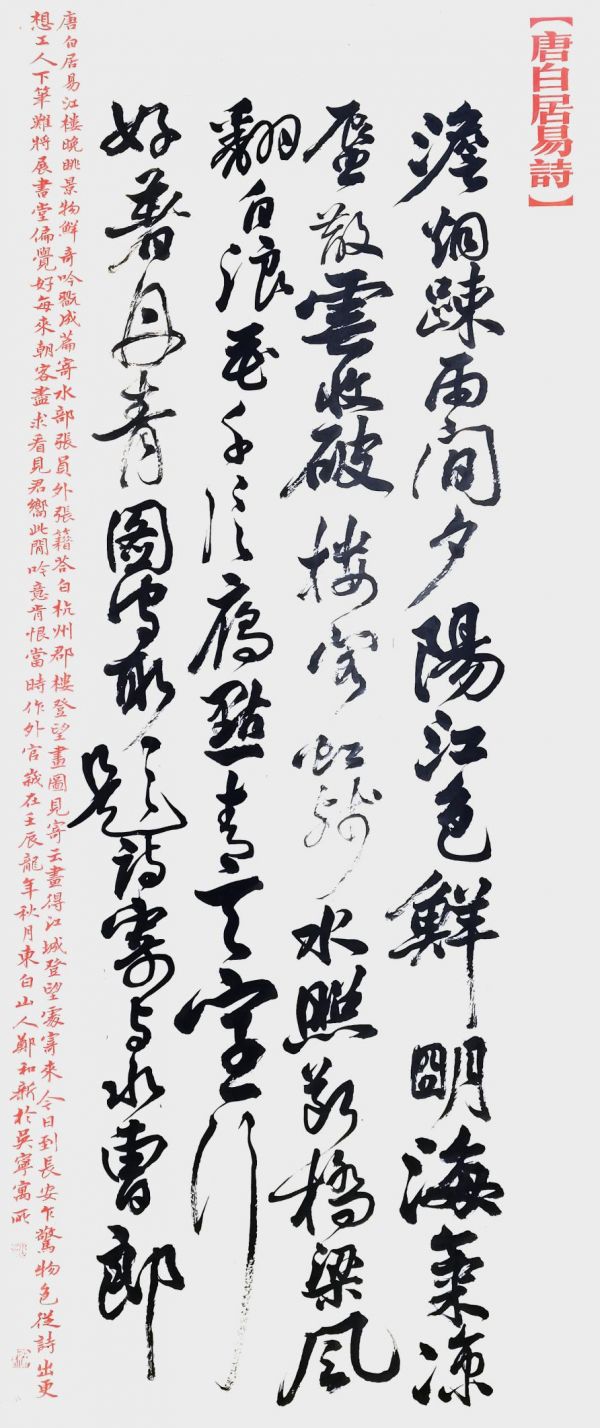 【唐白居易詩】
澹烟踈雨間夕陽江色鮮明海氣凉
蜃散雲收破樓閣虹殘水照斷橋梁風
翻白浪花千片鴈點青天字一行
好著丹青圖寫取題詩寄與水曹郎
唐白居易江樓晚眺景物鮮奇吟翫成篇寄水部張員外張籍答白杭州郡樓登望畫圖見寄云畫得江城登望處寄來今日到長安乍驚物色從詩出更
想工人下筆難將展書堂偏覺好每來朝客盡求看見君嚮此閒吟意肯恨當時作外官歲在壬辰龍年秋月東白山人鄭和新於吳寧寓所